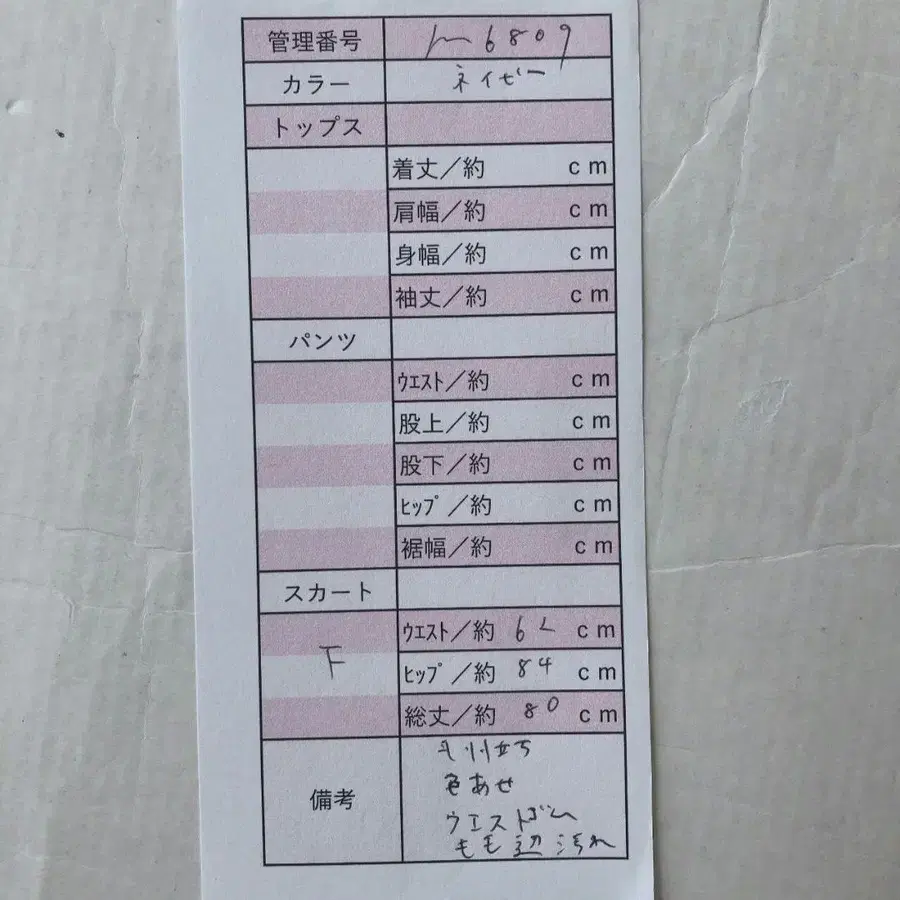 管理番号 m6809
カラー ネイビー
トップス
着丈／約 cm
肩幅／約 cm
身幅／約 cm
袖丈／約 cm
パンツ
ｳｴｽﾄ／約 cm
股上／約 cm
股下／約 cm
ﾋｯﾌﾟ／約 cm
裾幅／約 cm
スカート
ｳｴｽﾄ／約 6 cm
下 ﾋｯﾌﾟ／約 84 cm
総丈／約 80 cm
毛羽立ち
備考 色あせ
ウエストゴム
もも辺汚れ